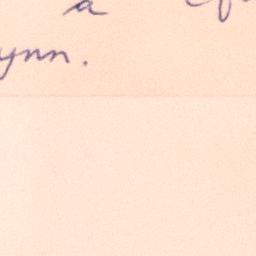 a
ynn.